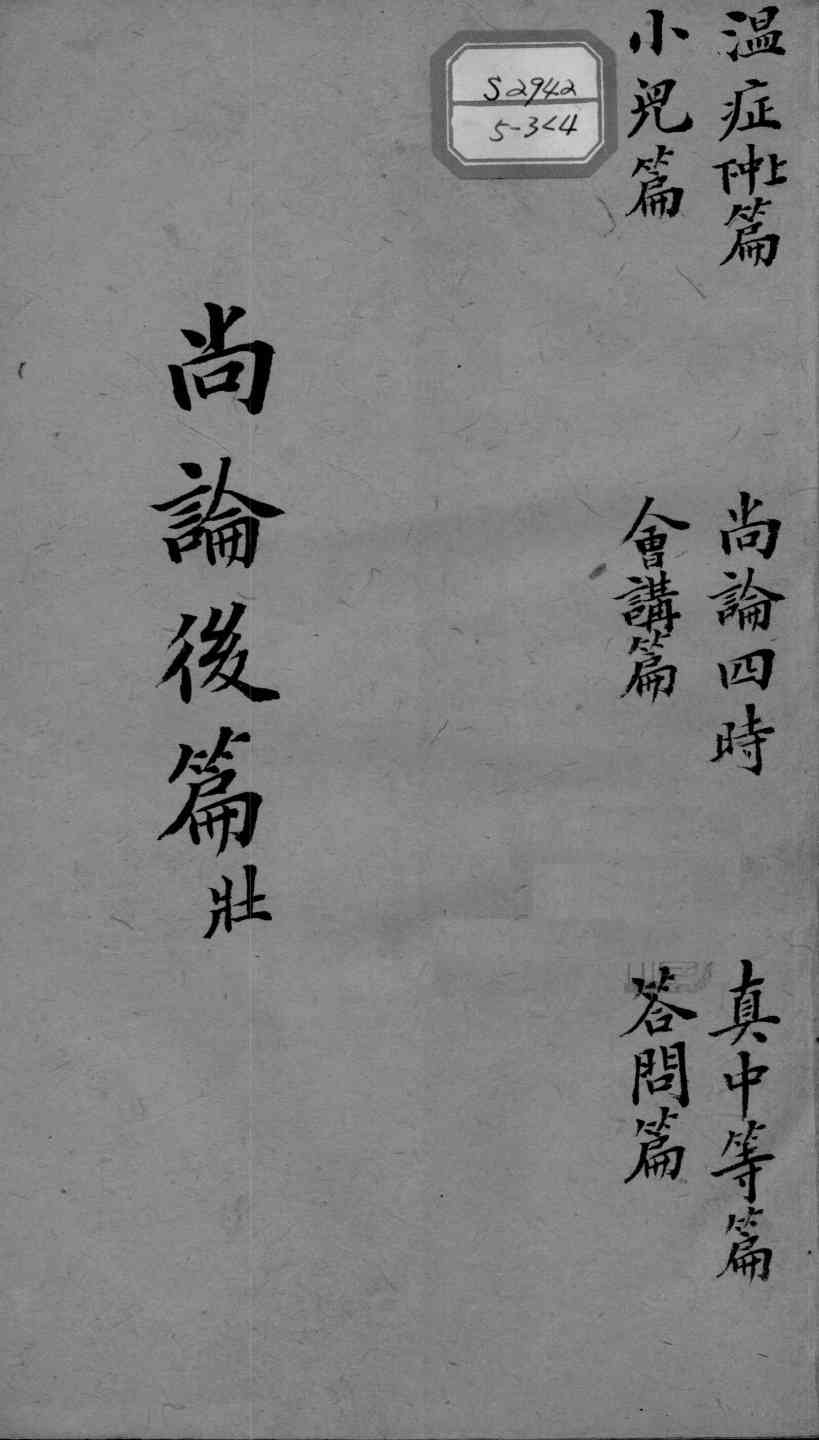 温症上中下篇
小児篇
尚論四時
會講篇
真中等篇
答問篇
尚論後篇 壯
S2942
5-3<4